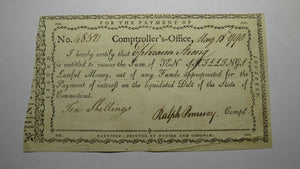 FOR THE PAYMENT OF
No. 4852 Comptroller's-Office, May 18 1790
I hereby certify that Ephraim Strong
is entitled to receive the Sum of TEN SHILLINGS
Lawful Money, out of any Funds appropriated for the
Payment of interest on the liquidated Debt of the State of
Connecticut.
Ten Shillings Ralph Pomeroy, Compt.
HARTFORD: PRINTED BY HUDSON AND GOODWIN.